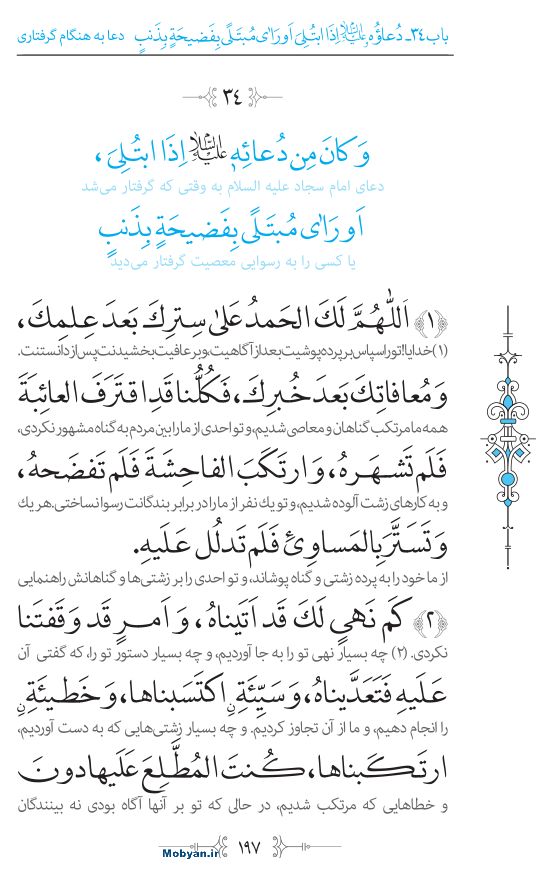 باب ۳۴ـ دُعاؤُه علیه السلام اِذَا ابتُلِیَ اَو رَایٰ مُبتَلًی بِفَضیحَةٍ بِذَنبٍ دعا به هنگام گرفتاری
۳۴
وَ کانَ مِن دُعائِهٖ علیه السلام اِذَا ابتُلِیَ،
دعای امام سجاد علیه السلام به وقتی که گرفتار می‌شد
اَو رَایٰ مُبتَلًی بِفَضیحَةٍ بِذَنبٍ
یا کسی را به رسوایی معصیت گرفتار می‌دید
﴿۱﴾ اَللّٰهُمَّ لَكَ الحَمدُ عَلیٰ سِترِكَ بَعدَ عِلمِكَ،
(۱) خدایا! تو را سپاس بر پرده پوشیت بعد از آگاهیت، و بر عافیت بخشیدنت پس از دانستنت.
وَ مُعافاتِكَ بَعدَ خُبرِكَ، فَكُلُّنا قَدِ اقتَرَفَ العائِبَةَ
همه ما مرتکب گناهان و معاصی شدیم، و تو احدی از ما را بین مردم به گناه مشهور نکردی،
فَلَم تَشهَرهُ، وَ ارتَكَبَ الفاحِشَةَ فَلَم تَفضَحهُ،
و به کارهای زشت آلوده شدیم، و تو یك نفر از ما را در برابر بندگانت رسوا نساختی. هر یك
وَ تَسَتَّرَ بِالمَساوِئِ فَلَم تَدلُل عَلَیهِ.
از ما خود را به پرده زشتی و گناه پوشاند، و تو احدی را بر زشتی‌ها و گناهانش راهنمایی
﴿۲﴾ كَم نَهیٍ لَكَ قَد اَتَیناهُ، وَ اَمرٍ قَد وَقَفتَنا
نکردی. (۲) چه بسیار نهی تو را به جا آوردیم، و چه بسیار دستور تو را، که گفتی آن
عَلَیهِ فَتَعَدَّیناهُ، وَ سَیِّئَةٍ ِن اكتَسَبناها، وَ خَطیئَةٍ ِن
را انجام دهیم، و ما از آن تجاوز کردیم. و چه بسیار زشتی‌هایی که به دست آوردیم،
ارتَكَبناها، كُنتَ المُطَّلِعَ عَلَیها دونَ
و خطاهایی که مرتکب شدیم، در حالی که تو بر آنها آگاه بودی نه بینندگان
۱۹۷
Mobyan.ir